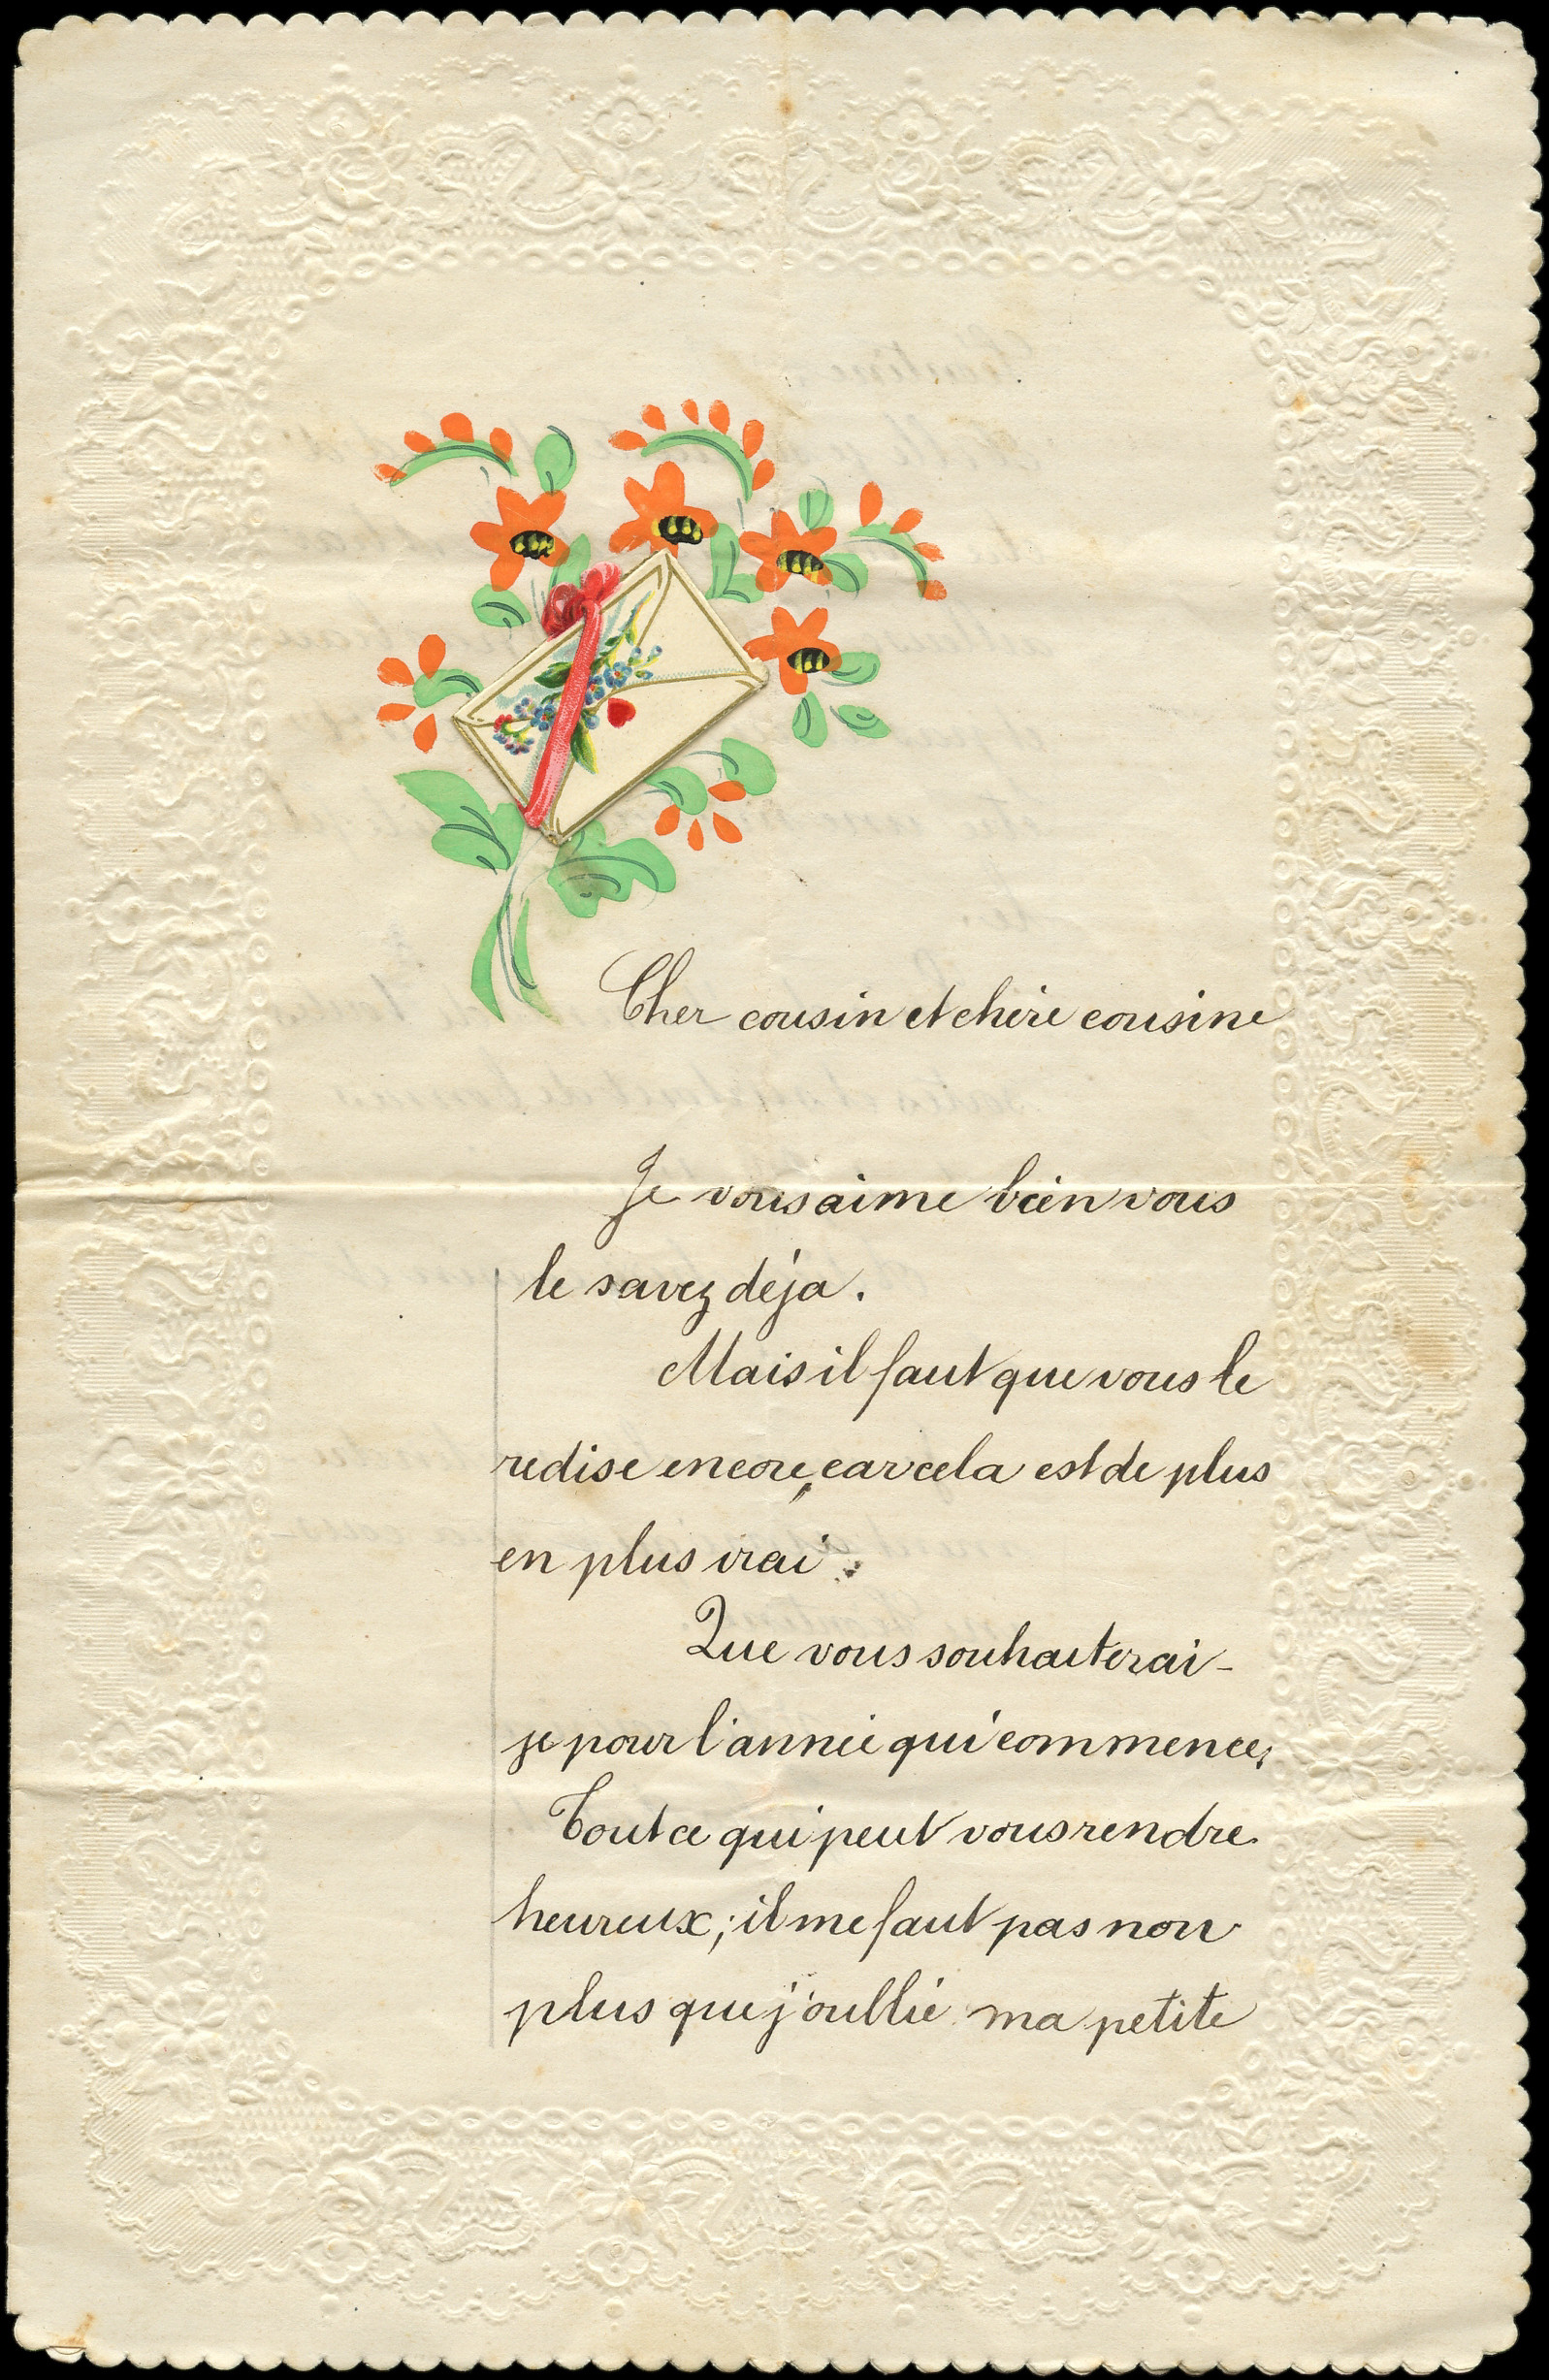 Cher cousin et chère cousine
Je vous aime bien vous
le savez déja.
Mais il faut que vous le
redise encore, car cela est de plus
en plus vrai.
Que vous souhaiterai-
je pour l'année qui commence,
Tout ce qui peut vous rendre
heureux; il me faut pas non
plus que j'oublie ma petite